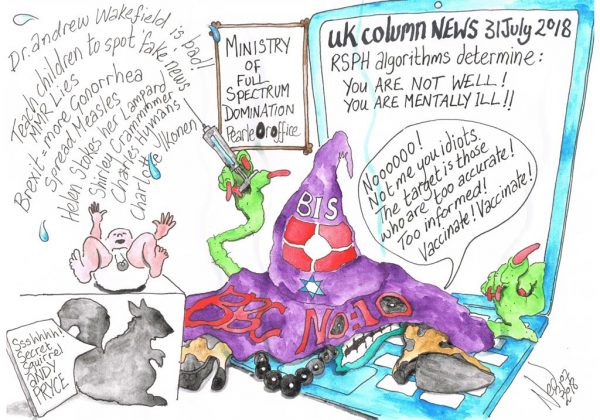 Dr. Andrew Wakefield is bad!
Teach children to spot 'fake news'
MMR Lies
Brexit = more Gonorrhea
Spread Measles
Helen Stokes her Lampard
Shirley Crammmmer
Charles Nymans
Charlotte Ikonen
MINISTRY
OF
FULL
SPECTRUM
DOMINATION
UK COLUMN NEWS 31 July 2018
RSPH algorithms determine:
YOU ARE NOT WELL!
YOU ARE MENTALLY ILL!!
Noooooo!
Not me you idiots.
The target is those
who are too accurate!
Too informed!
Vaccinate! Vaccinate!
BIS
BBC
Ssshhhh!
Secret
Squirrel
ANDY
PRYCE
2018